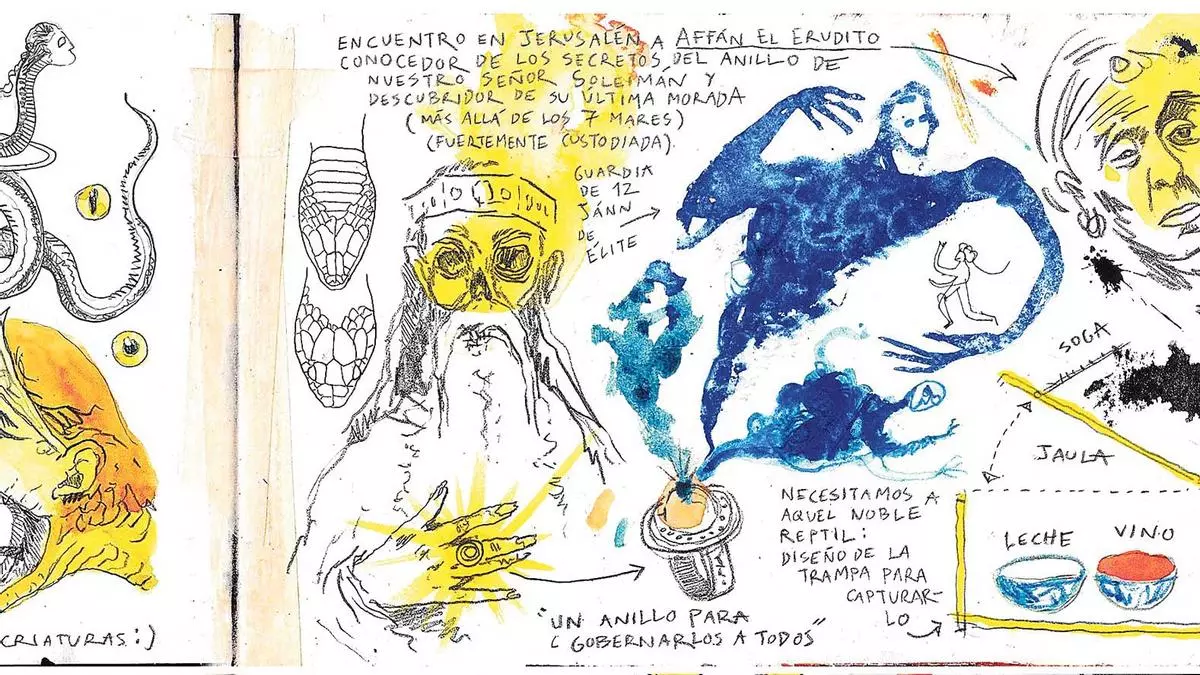 ENCUENTRO EN JERUSALÉN A AFFÁN EL ERUDITO
CONOCEDOR DE LOS SECRETOS DEL ANILLO DE
NUESTRO SEÑOR SOLEIMÁN Y
DESCUBRIDOR DE SU ÚLTIMA MORADA
(MÁS ALLÁ DE LOS 7 MARES)
(FUERTEMENTE CUSTODIADA).
GUARDIA
DE 12
JÁNN
DE
ÉLITE
SOGA
JAULA
NECESITAMOS A
AQUEL NOBLE
REPTIL:
DISEÑO DE LA
TRAMPA PARA
CAPTURAR-
LO
LECHE
VINO
"UN ANILLO PARA
GOBERNARLOS A TODOS"
CRIATURAS:)